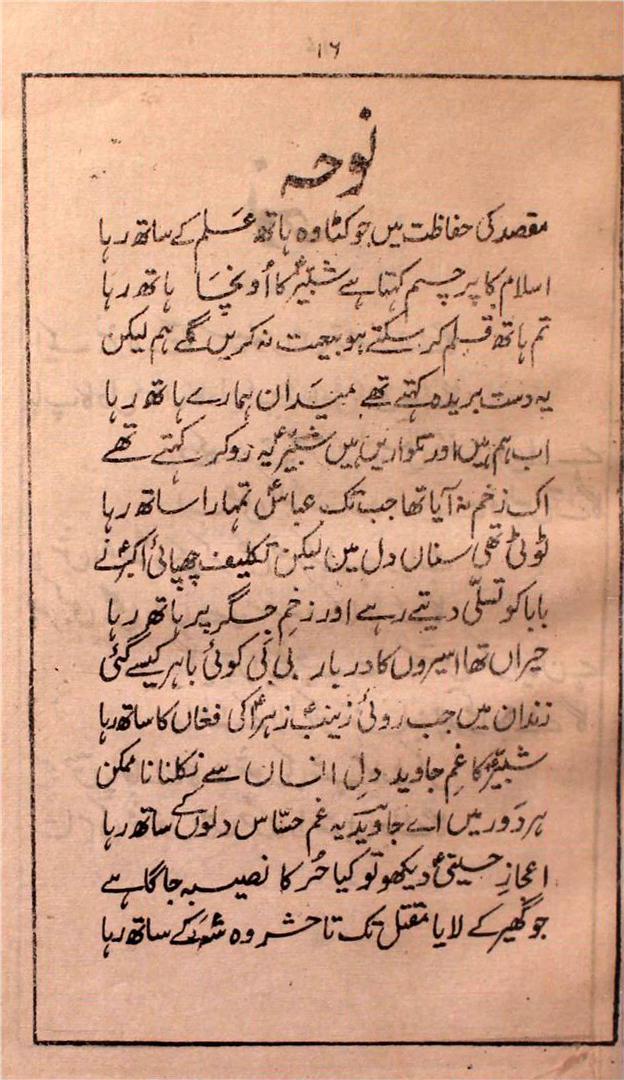 ۱۶
نوحہ
مقصد کی حفاظت میں جو کٹا وہ ہاتھ عَلم کے ساتھ رہا
اسلام کا پرچم کہتا ہے شبّیرؑ کا اُونچا ہاتھ رہا
تم ہاتھ قلم کر سکتے ہو بیعت نہ کریں گے ہم لیکن
یہ دست بریدہ کہتے تھے میدان ہمارے ہاتھ رہا
اب ہم ہیں اور تلواریں ہیں شبیرؑ یہ رو کر کہتے تھے
اک زخم نہ آیا تھا جب تک عباسؑ تمہارا ساتھ رہا
ٹوٹی تھی سناں دل میں لیکن تکلیف چھپائی اکبرؑ نے
بابا کو تسلّی دیتے رہے اور زخمِ جگر پر ہاتھ رہا
حیراں تھا اسیروں کا دربار بی بی کوئی باہر کیسے گئی
زندان میں جب روئی زینبؑ زہراؑ کی فغاں کا ساتھ رہا
شبیّرؑ کا غمِ جاوید دلِ انساں سے نکلنا ناممکن
ہر دَور میں اے جاویدؔ یہ غم حسّاس دلوں کے ساتھ رہا
اعجازِ حسینیؑ دیکھو تو کیا حُر کا نصیبہ جاگا ہے
جو گھیر کے لایا مقتل تک تا حشر وہ شہؑ کے ساتھ رہا